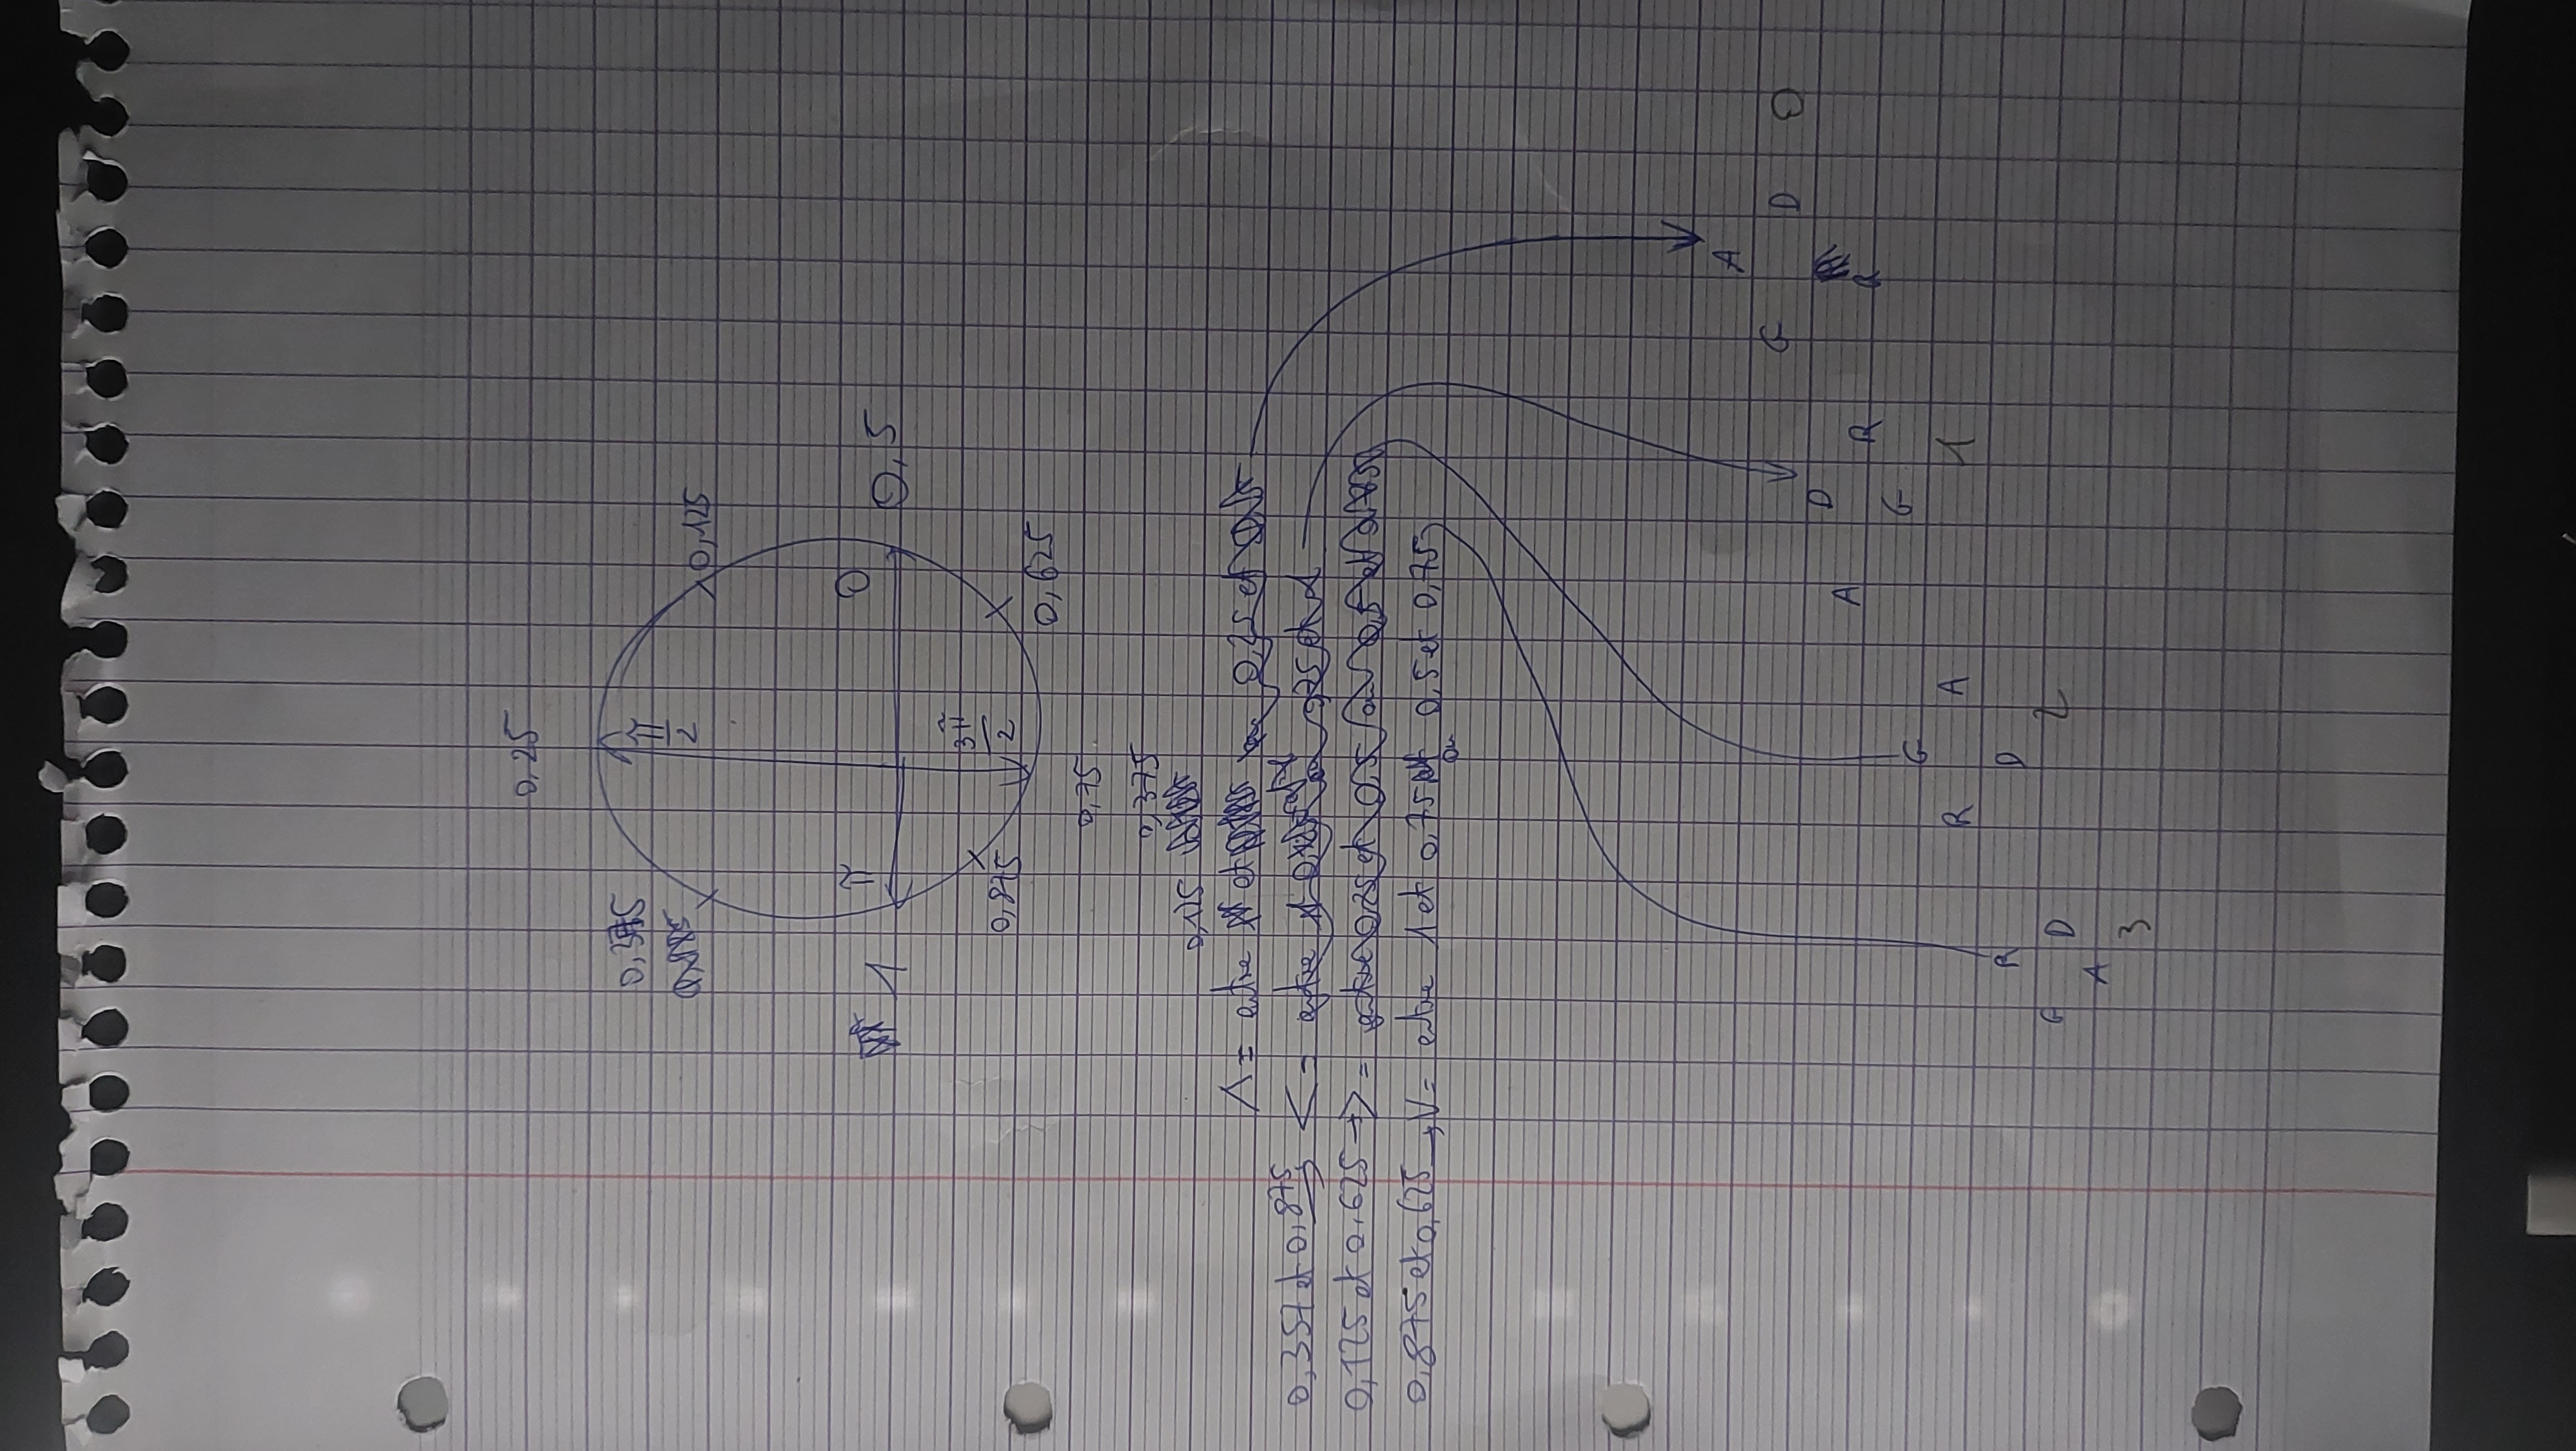 0,25
0,375
π/2
0,125
π
0
1
0,5
3π/2
0,875
0,625
0,75
0,375
0,125
Λ = entre et 0,25 et
0,357 et 0,875 < = entre 0,75 et 1
0,125 et 0,625 → > = entre 0,25 et 0,5 ou 0,5 et
0,875 et 0,625 → V = entre 1 et 0,75 ou 0,5 et 0,75
A
G D 0
R
D
A R
G
1
G
R A
D
2
R
G D
A
3